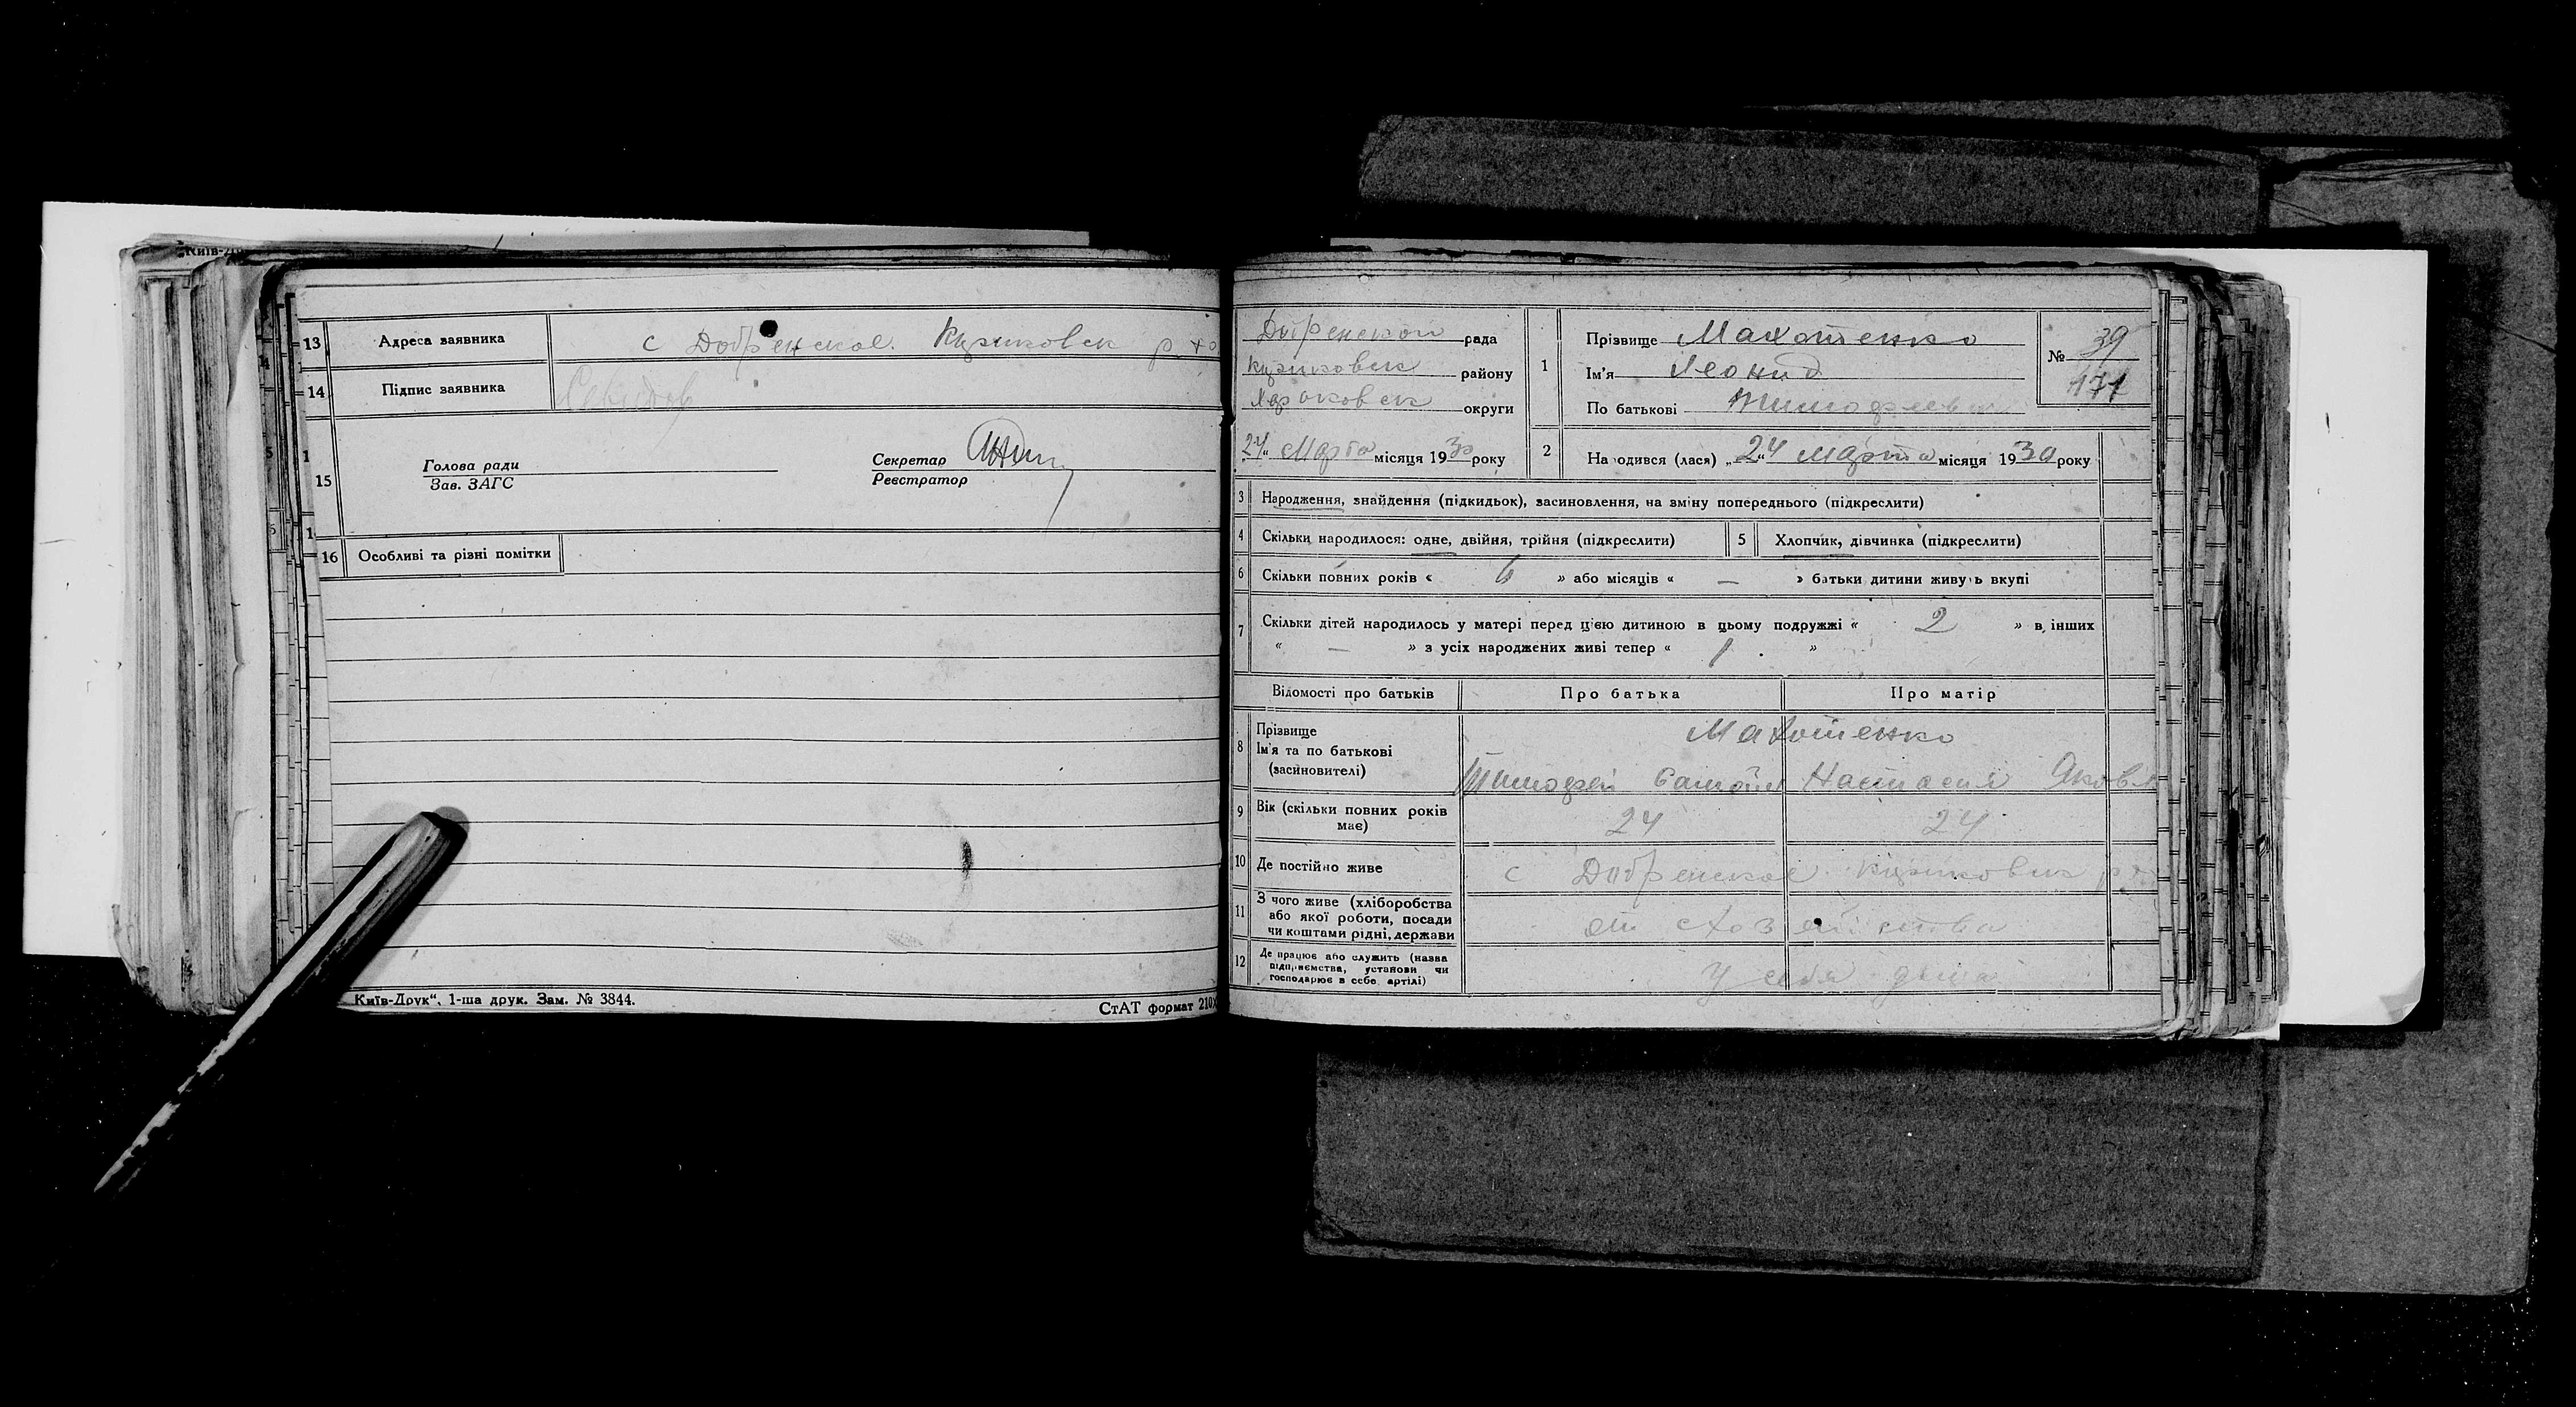 Київ-Др
13 Адреса заявника с Добренское. Кцтиковск р хо
14 Підпис заявника
15 Голова ради Секретар
Зав. ЗАГС Реєстратор
16 Особливі та різні помітки
Київ-Друк“, 1-ша друк. Зам. № 3844. СтАТ формат 210х
Добренской рада
району
Харковск округи
„24“ Марта місяця 1930 року
1 Прізвище Махотенко
Ім'я Леонид
По батькові Тимофеевич
№ 39
171
2 На одився (лася) „24“ марта місяця 1930 року
3 Народження, знайдення (підкидьок), засиновлення, на зміну попереднього (підкреслити)
4 Скільки народилося: одне, двійня, трійня (підкреслити) 5 Хлопчик, дівчинка (підкреслити)
6 Скільки повних років « 6 » або місяців « — » батьки дитини живуть вкупі
7 Скільки дітей народилось у матері перед цією дитиною в цьому подружжі « 2 » в інших
« — » з усіх народжених живі тепер « 1 »
Відомості про батьків Про батька Про матір
8 Прізвище Махотенко
Ім'я та по батькові
(засиновителі) Тимофей Самойл Настасия Яковл
9 Вік (скільки повних років
має) 24 24
10 Де постійно живе с Добренское
11 З чого живе (хліборобства
або якої роботи, посади
чи коштами рідні, держави от схозяйства
12 Де працює або служить (назва
підприємства, установи чи
господарює в себе артілі) У себя дома